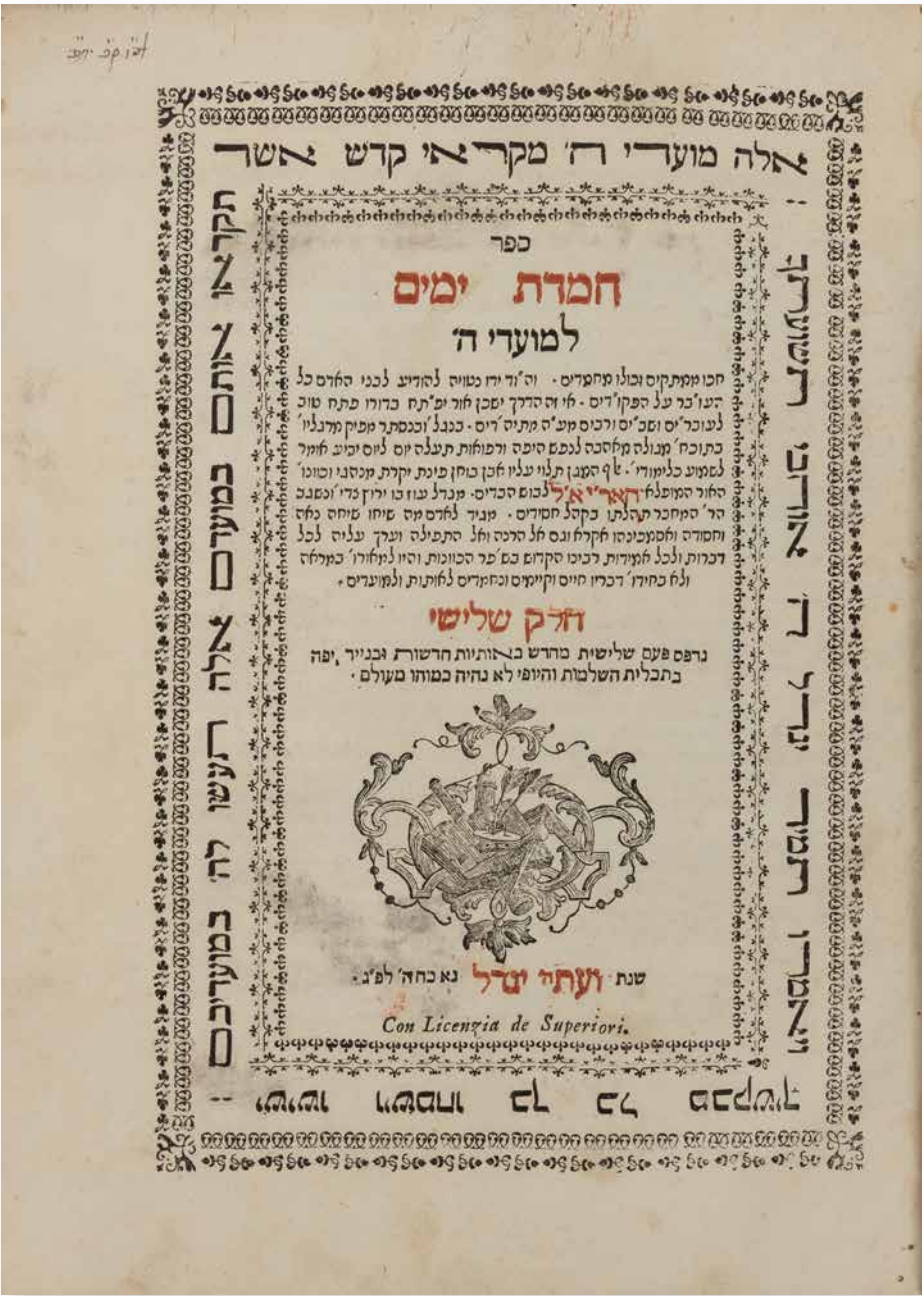 אלה מועדי ה׳ מקראי קדש אשר
תקראו אותם במועדם אלה תעשו לה׳ במועדיכם
: ישישו וישמחו בך כל מבקשיך
ויאמרו תמיד יגדל ה׳ אוהבי תשועתך :
ספר
חמדת ימים
למועדי ה׳
חכו ממתקים וכולו מחמדים · וה״וד ידו נטויה להודיע לבני האדם כל
העו״בר על הפקו״דים · אי זה הדרך ישכן אור יפ״תח בדורו פתח טוב
לעובר״ים ושב״ים ורבים מע״ה מתיה״דים · בנגל׳ ובנסתר מפיק מרגליו׳
בתוכח׳ מגולה מאהבה לנפש היפה ורפואות תעלה יום ליום יביע אומר
לשמוע כלימודי׳ · אף המגן תלוי עליו אבן בוחן פינת יקרת מנהגי וכוונו׳
האור המופלא האר״י א״ל לבוש הבדים · מגדל עוז בו ירוץ גדי׳ ונשגב
הר׳ המחבר תהלתו בקהל חסידים · מגיד לאדם מה שיחו שיחה נאה
וחסודה ואסמכינהו אקרא וגם אל הרנה ואל התפילה וערך עליה לכל
דברות ולכל אמירות רבינו הקדוש בש׳פר הכוונות והיו למאורו׳ במראה
ולא בחידו׳ דבריו חיים וקיימים ונחמדים לאותות ולמועדים ·
חלק שלישי
נדפס פעם שלישית מחדש באותיות חדשות ובנייר יפה
בתכלית השלמות והיופי לא נהיה כמוהו מעולם ·
שנת ועתה יגדל נא כחה׳ לפ״ג ·
Con Licenzia de Superiori.